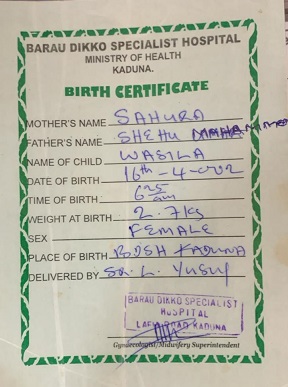 BARAU DIKKO SPECIALIST HOSPITAL
MINISTRY OF HEALTH
KADUNA.
BIRTH CERTIFICATE
MOTHER'S NAME SAHURA
FATHER'S NAME SHEHU
NAME OF CHILD WASILA
DATE OF BIRTH 16th-4-2002
TIME OF BIRTH 6 25 am
WEIGHT AT BIRTH 2.7kg
SEX FEMALE
PLACE OF BIRTH BDSH KADUNA
DELIVERED BY Sr. L. Yusuf
BARAU DIKKO SPECIALIST
HOSPITAL
LAFIA ROAD KADUNA
Gynaecologist/Midwifery Superintendent